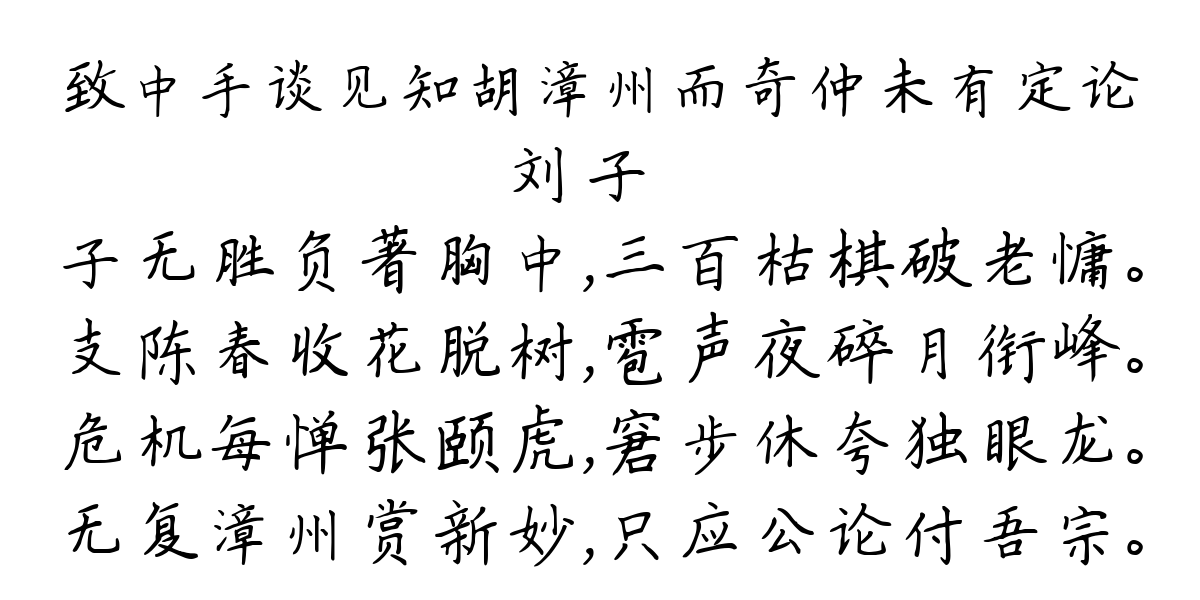 致中手谈见知胡漳州而奇仲未有定论
刘子
子无胜负著胸中,三百枯棋破老慵。
支陈春收花脱树,雹声夜碎月衔峰。
危机每惮张颐虎,窘步休夸独眼龙。
无复漳州赏新妙,只应公论付吾宗。